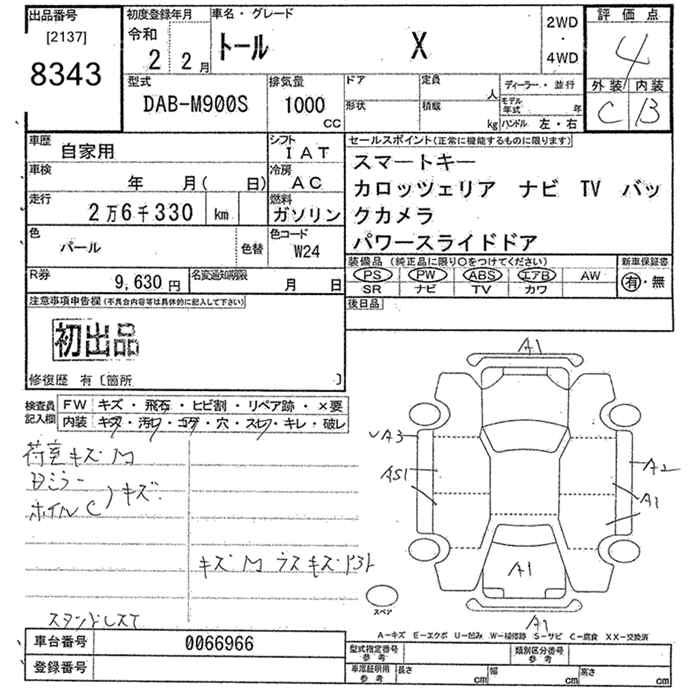 出品番号
[2137]
8343
初度登録年月
令和
2 2月
車名・グレード
トール X
2WD
・
4WD
評価点
4
外装 内装
C B
型式
DAB-M900S
排気量
1000
CC
ドア
形状
定員
人
積載
kg
ディーラー・並行
モデル年式 年
ハンドル 左・右
車歴
自家用
シフト
IAT
車検
年 月( 日)
冷房
AC
走行
2万6千330 km
燃料
ガソリン
色
パール
色替
色コード
W24
R券
9,630円
名変通知期限
月 日
セールスポイント(正常に機能するものに限ります)
スマートキー
カロッツェリア ナビ TV バッ
クカメラ
パワースライドドア
装備品(純正品に限り○をつけてください)
PS PW ABS エアB AW
SR ナビ TV カワ
新車保証書
有・無
後日品
注意事項申告欄(不具合内容等は具体的に記入して下さい)
初出品
修復歴 有〔箇所 〕
検査員
記入欄
FW キズ・飛石・ヒビ割・リペア跡・×要
内装 キズ・汚レ・コゲ・穴・スレ・キレ・破レ
荷室キズM
Dミラー
ホイルC
)キズ
キズM ラスキズ
A1
A3
AS1
A2
A1
A1
A1
スペア
A-キズ E-エクボ U-凹み W-補修跡 S-サビ C-腐食 XX-交換済
車台番号
0066966
登録番号
型式指定番号
参考
類別区分番号
参考
車庫証明用
参考
長さ cm
幅 cm
高さ cm